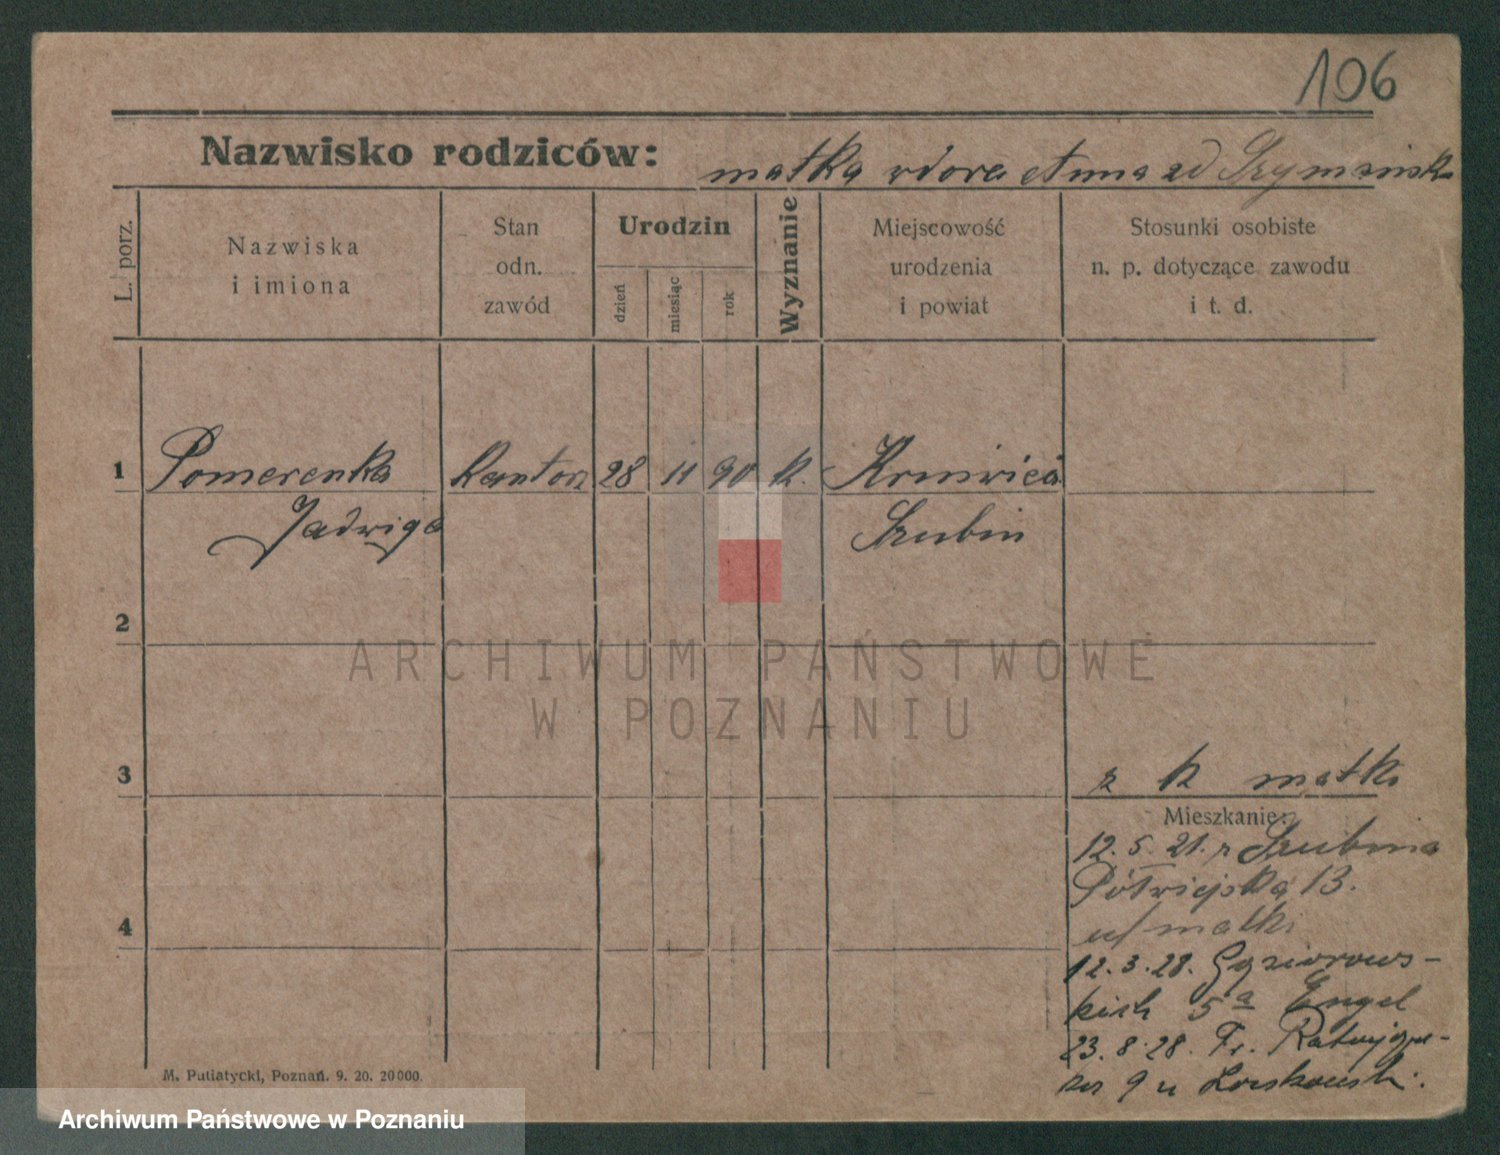 106
Nazwisko rodziców: matka wdowa Anna zd Szymańsk
L. porz.
Nazwiska
i imiona
Stan
odn.
zawód
Urodzin
dzień
miesiąc
rok
Wyznanie
Miejscowość
urodzenia
i powiat
Stosunki osobiste
n. p. dotyczące zawodu
i t. d.
1 Pomerenka 28 11 90 k.
Jadwiga Szubin
2
3
z k matki
Mieszkanie:
12.5.21. z Szubina
Półwiejska 13.
u/ matki
4
12.3.28. Gąsiorows-
kich 5a Engel
23.8.28. Fr. Ratajcza-
ka 9 u
M. Putiatycki, Poznań. 9. 20. 20000.
ARCHIWUM PAŃSTWOWE
W POZNANIU
Archiwum Państwowe w Poznaniu